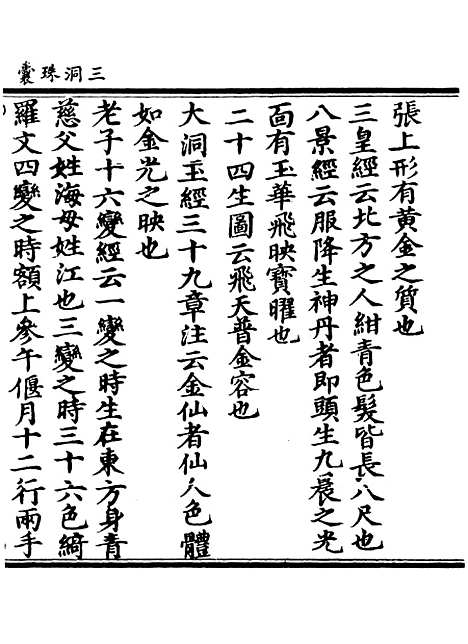 三洞珠囊
張上形有黃金之質也
三皇經云北方之人紺青色髮皆長八尺也
八景經云服降生神丹者即頭生九晨之光
面有玉華飛映寶曜也
二十四生圖云飛天普金容也
大洞玉經三十九章注云金仙者仙人色體
如金光之映也
老子十六變經云一變之時生在東方身青
慈父姓海母姓江也三變之時三十六色綺
羅文四變之時額上參午偃月十二行兩手